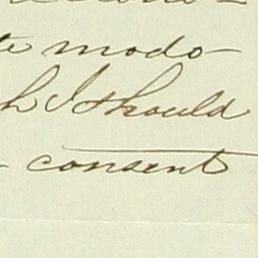 modo
h I should
consent